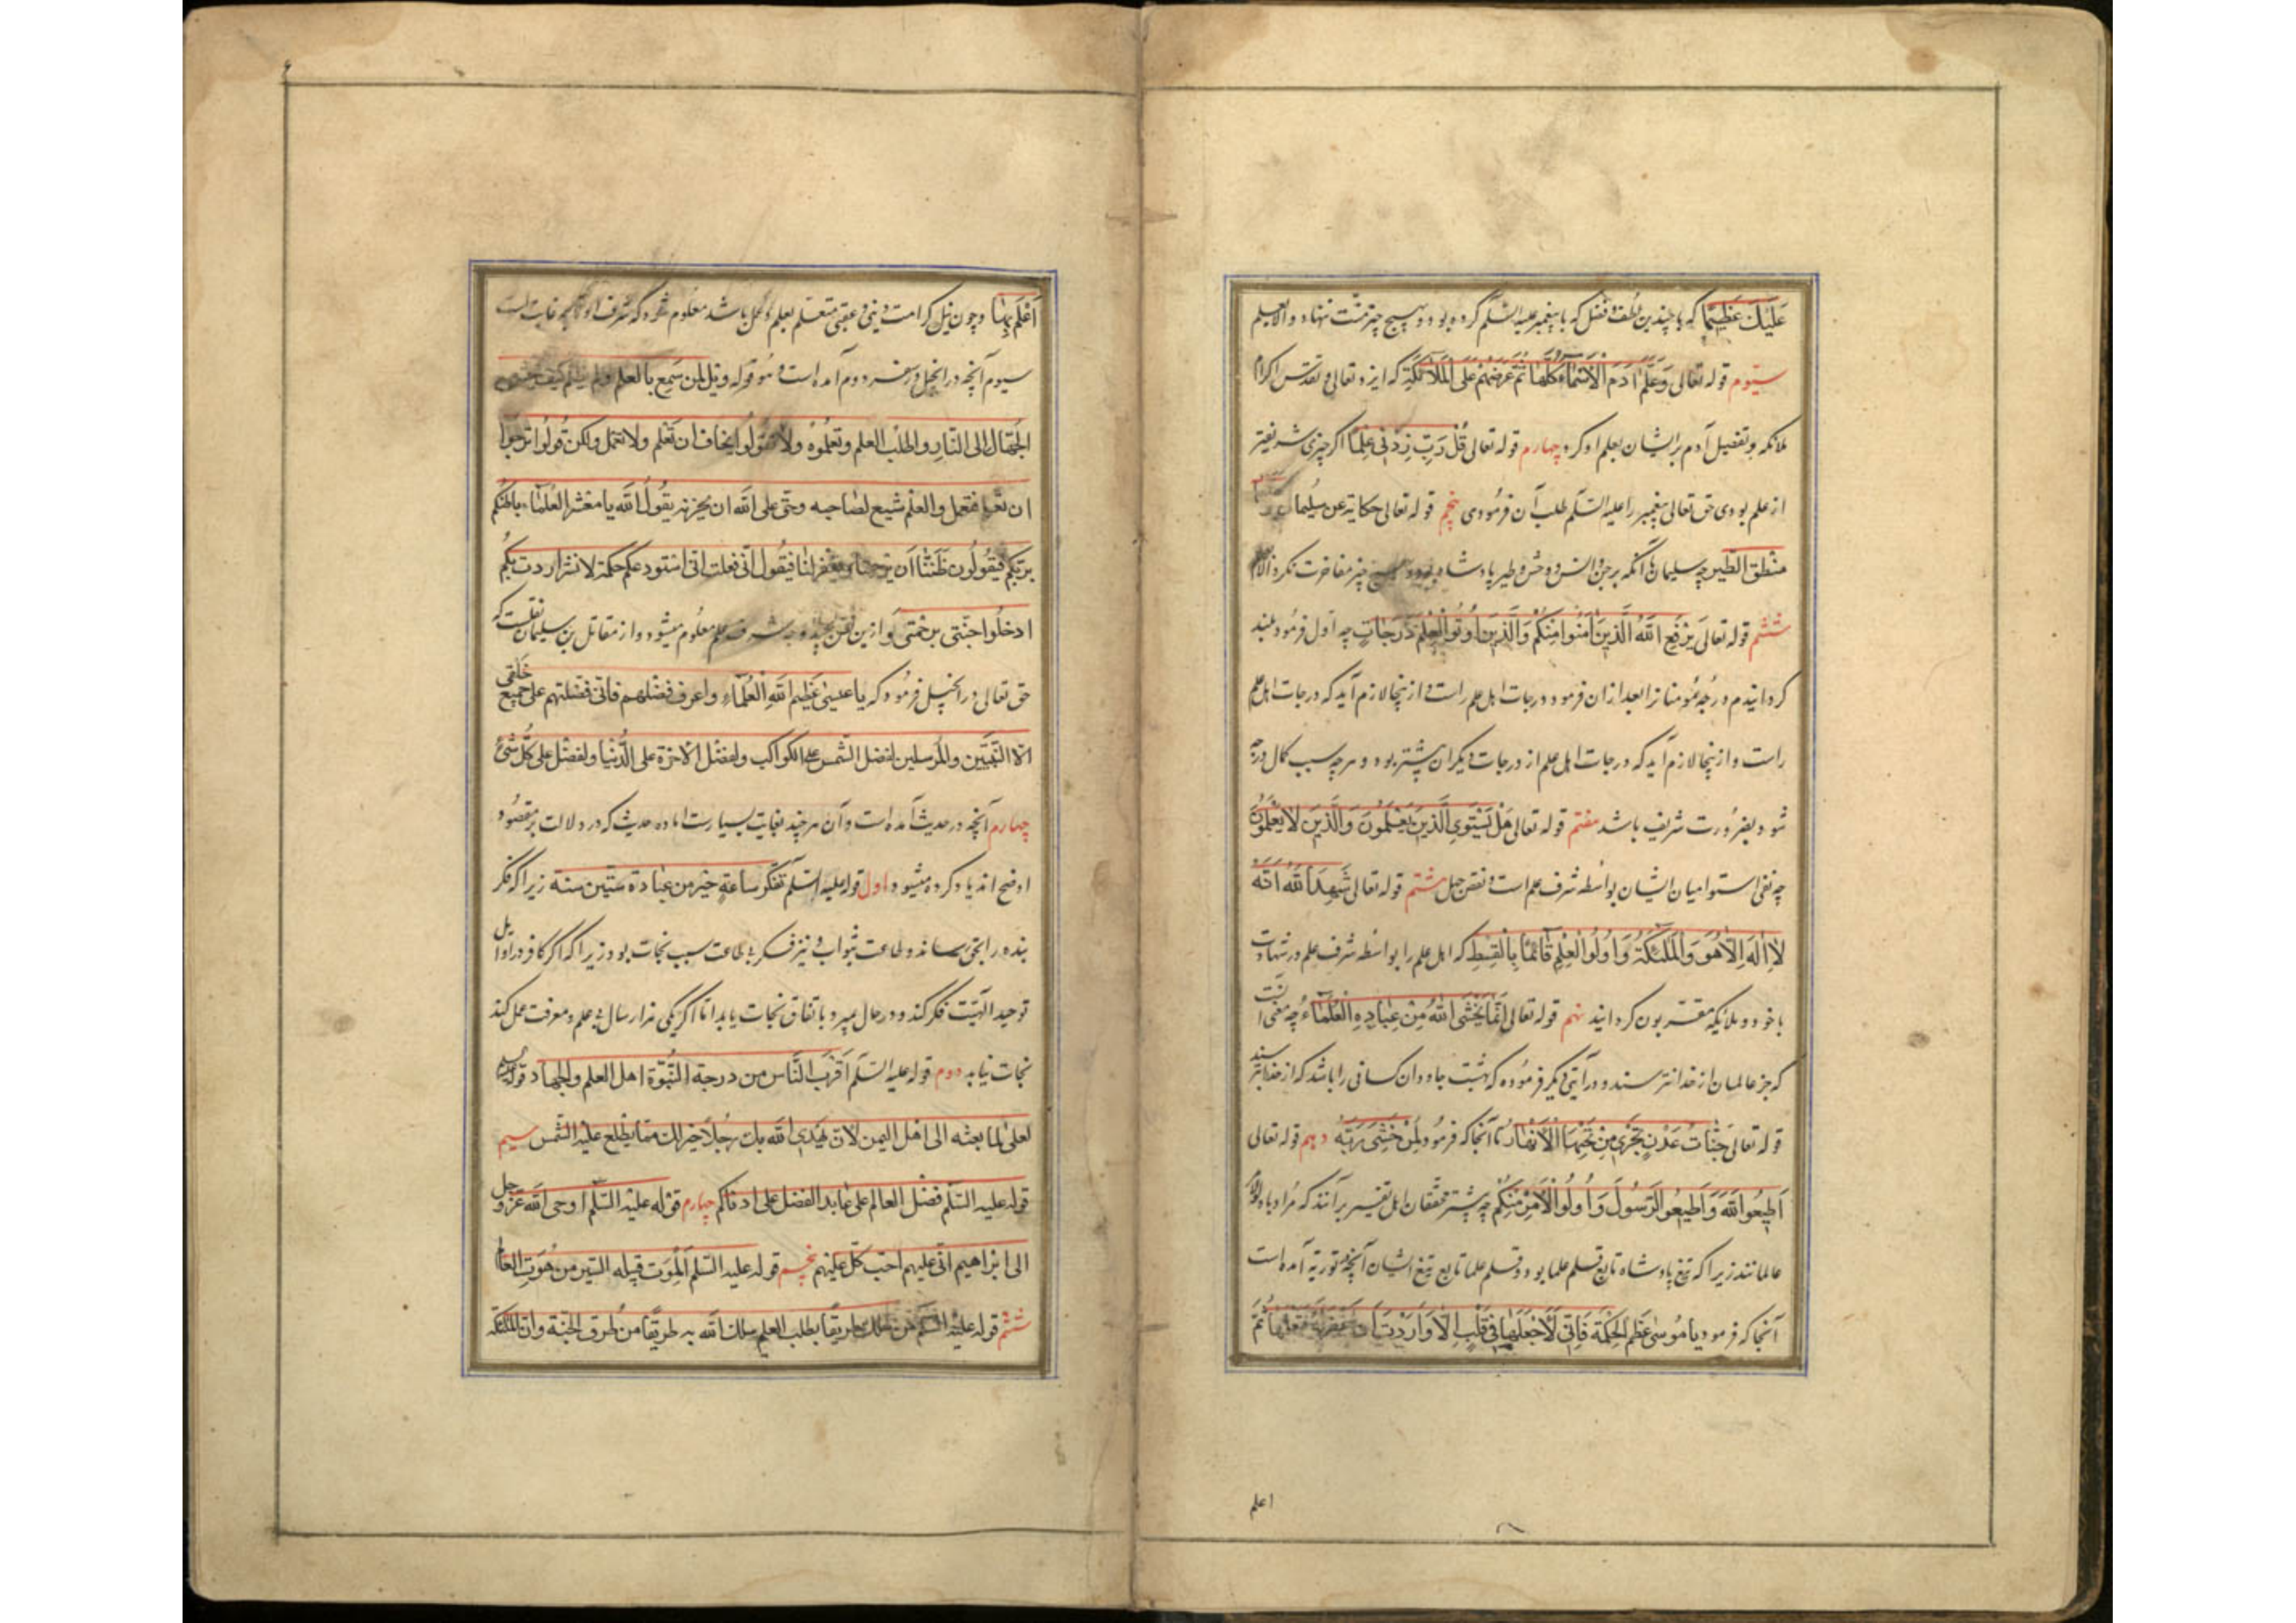 عَلَيْكَ عَظِيمًا که با چندین لطف و فضل که با پیغمبر علیه السّلم کرده بود و بهیچ چیز منّت ننهاد و الا بعلم
سیّوم قوله تعالی وَعَلَّمَ اٰدَمَ الْاَسْمَاءَ کُلَّهَا ثُمَّ عَرَضَهُمْ عَلَی الْمَلَائِکَةِ که ایزد تعالی و تقدّس اکرام
ملائکه و تفضیل آدم بر ایشان بعلم او کرد چهارم قوله تعالی قُلْ رَبِّ زِدْنِی عِلْمًا اگر چیزی شریفتر
از علم بودی حق تعالی پیغمبر را علیه السّلم طلب آن فرمودی پنجم قوله تعالی حکایة عن سلیمان
مَنْطِقَ الطَّیْرِ چه سلیمان با آنکه بر جن و انس و وحش و طیر پادشاه بود و بهیچ چیز مفاخرت نکرد الا
ششم قوله تعالی یَرْفَعِ اللّٰهُ الَّذِینَ اٰمَنُوا مِنْکُمْ وَالَّذِینَ اُوتُوا الْعِلْمَ دَرَجَاتٍ چه اول فرمود بلند
کردانیدم درجه مؤمنانرا بعد از ان فرمود درجات اهل علم راست و ازینجا لازم آید که درجات اهل علم
راست و ازینجا لازم آید که درجات اهل علم از درجات دیکران پیشتر بود و هرچه سبب کمال درجه
شود بضرورت شریف باشد هفتم قوله تعالی هَلْ یَسْتَوِی الَّذِینَ یَعْلَمُونَ وَالَّذِینَ لَا یَعْلَمُونَ
چه نفی استوا میان ایشان بواسطه شرف علم است و نقص جهل هشتم قوله تعالی شَهِدَ اللّٰهُ اَنَّهُ
لَا اِلٰهَ اِلَّا هُوَ وَالْمَلٰئِکَةُ وَاُولُوا الْعِلْمِ قَائِمًا بِالْقِسْطِ که اهل علم را بواسطه شرف علم در شهادت
با خود و ملایکه مقرّبون کردانید نهم قوله تعالی اِنَّمَا یَخْشَی اللّٰهَ مِنْ عِبَادِهِ الْعُلَمَاءُ چه معنی آنست
که جز عالمان از خدا نترسند و در آیتی دیکر فرموده که بهشت جاودان کسانی را باشد که از خدا بترسند
قوله تعالی جَنَّاتُ عَدْنٍ تَجْرِی مِنْ تَحْتِهَا الْاَنْهَارُ تا آنجا که فرمود لِمَنْ خَشِیَ رَبَّهُ دهم قوله تعالی
اَطِیعُوا اللّٰهَ وَاَطِیعُوا الرَّسُولَ وَاُولُوا الْاَمْرِ مِنْکُمْ چه بیشتر محقّقان اهل تفسیر برآنند که مراد باولوالامر
عالمانند زیرا که تیغ پادشاه تابع قلم علما بود و قلم علما تابع تیغ ایشان آنچه در توریة آمده است
آنجا که فرمود یا مُوسٰی عَظِّمِ الْحِکْمَةَ فَاِنِّی لَا اَجْعَلُهَا فِی قَلْبٍ اِلَّا وَاَرَدْتُ اَنْ ثُمَّ
اعلم
اَعْلَمَ بِهَا و چون نیل کرامت دینی و عقبی متعلّم بعلم و عمل باشد معلوم شود که شرف او
سیوم آنچه در انجیل در سفر دوم آمده است و هو قوله ویل لمن سمع بالعلم ولم یطلبه کیف
الجُهّال الی النّار واطلب العلم وتعلّموه ولا تقولوا نخاف ان نعلم ولا نعمل ولکن قولوا نرجوا
ان نعلم فنعمل والعلم شیع لصاحبه وحق علی اللّه ان یخزیه یقول اللّه یا معشر العلماء ما ظنّکم
بربّکم فیقولون ظننّا ان یرحمنا ویغفر لنا فیقول انّی فعلت انّی استودعکم حکمة لا لشرّ اردت بکم
ادخلوا جنّتی برحمتی و ازین شرف علم معلوم میشود و از مقاتل بن سلیمان نقلست که
حق تعالی در انجیل فرمود که یا عیسی عظّم اللّه العلماء واعرف فضلهم فانّی فضّلتهم علی جمیع خلقی
الّا النّبیّین والمرسلین لفضل الشّمس علی الکواکب ولفضل الآخرة علی الدّنیا ولفضل علی کلّ شیء
چهارم آنچه در حدیث آمده است و آن هرچند بغایت بسیارست اما ده حدیث که در دلالت بر مقصود
اوضح اند یاد کرده میشود اول قوله علیه السّلم تفکّر ساعة خیر من عبادة ستّین سنة زیرا که فکر
بنده را بحق رساند و طاعت بثواب و نیز فکر بی طاعت سبب نجات بود زیرا که اگر کافر در اوایل
توحید الهیّت فکر کند و در حال میرد باتفاق نجات یابد اما اگر یکی هزار سال بی علم و معرفت عمل کند
نجات نیابد دوم قوله علیه السّلم اقرب النّاس من درجة النّبوّة اهل العلم والجهاد قوله علیه السلم
لعلی لمّا بعثه الی اهل الیمن لان یهدی اللّه بك رجلا خیر لك ممّا یطلع علیه الشّمس سیم
قوله علیه السّلم فضل العالم علی عابد لفضل علی ادناکم چهارم قوله علیه السّلم اوحی اللّه عزّ وجل
الی ابراهیم انّی علیم احب کلّ علیم پنجم قوله علیه السّلم المَوت قبیله ایسر من موت العالم
ششم قوله علیه السّلم من سلك طریقا یطلب العلم سلك اللّه به طریقا من طرق الجنّة وانّ الملئکة